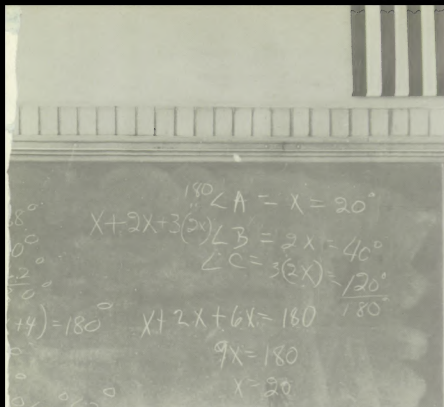 180 ∠A = x = 20°
x+2x+3(2x) ∠B = 2x = 40°
∠C = 3(2x) = 120°
180°
+4) = 180°
x+2x+6x = 180
9x = 180
x = 20